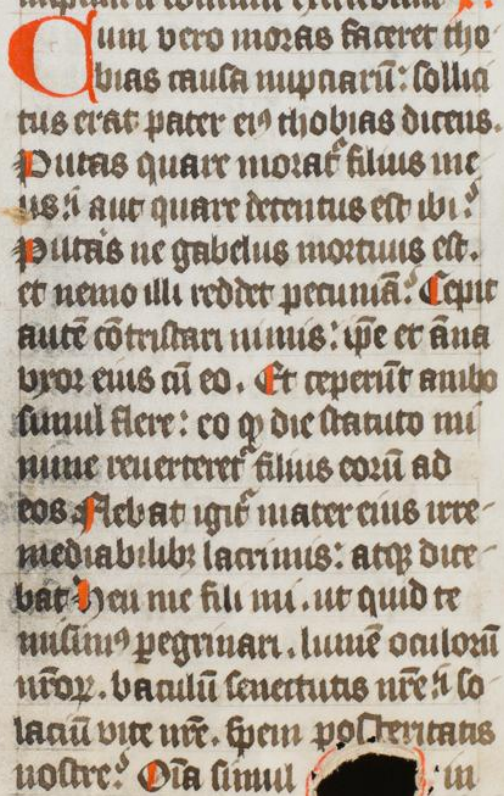 Cum vero moras faceret tho-
bias causa nuptiarū: sollici
tus erat pater eiꝰ thobias dicens.
Putas quare morat᷑ filius me-
us: aut quare detentus est ibi?
Putas ne gabelus mortuus est.
et nemo illi reddet pecuniā? Cepit
autē cōtristari nimis: ip̄e et āna
vxor eius cū eo. Et ceperūt ambo
simul flere: eo ꝙ die statuto mi
nime reuerteret᷑ filius eorū ad
eos. Flebat igit᷑ mater eius irre-
mediabilibꝫ lacrimis: atqꝫ dice-
bat Heu me fili mi. ut quid te
misimꝰ ꝑegrinari. lumē oculorū
nr̄oꝝ. baculū senectutis nr̄e: so-
laciū vite nr̄e. spem posteritatis
nostre? Oīa simul in